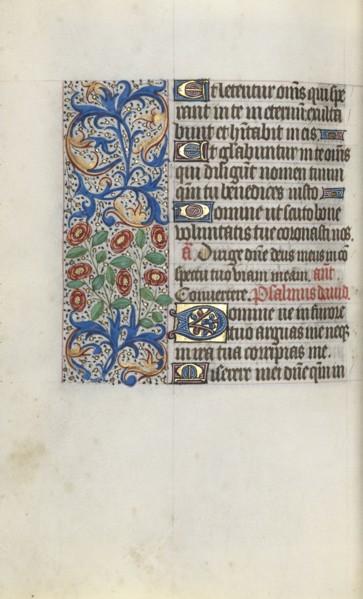 Et letentur om̄s qui spe
rant in te in eternum exulta
bunt et hītabit in eis
Et gl'abuntur in te om̄s
qui diligūt nomen tuum
qm̄ tu benedices iusto
Domine ut scuto bone
voluntatis tue coronasti nos.
a. Dirige dn̄e deus meus in cō
spectu tuo viam meam. ant.
Convertere. Psalmus david.
Domine ne in furore
tuo arguas me neqȝ
in ira tua corripias me.
Miserere mei dn̄e qm̄ in